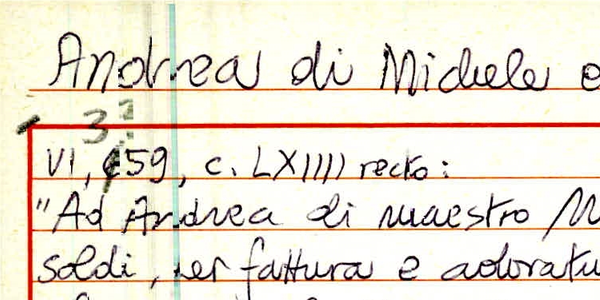 Andrea di Michele
3
VI, 59, c. LXIIII recto:
"Ad Andrea di maestro
soldi, per fattura e